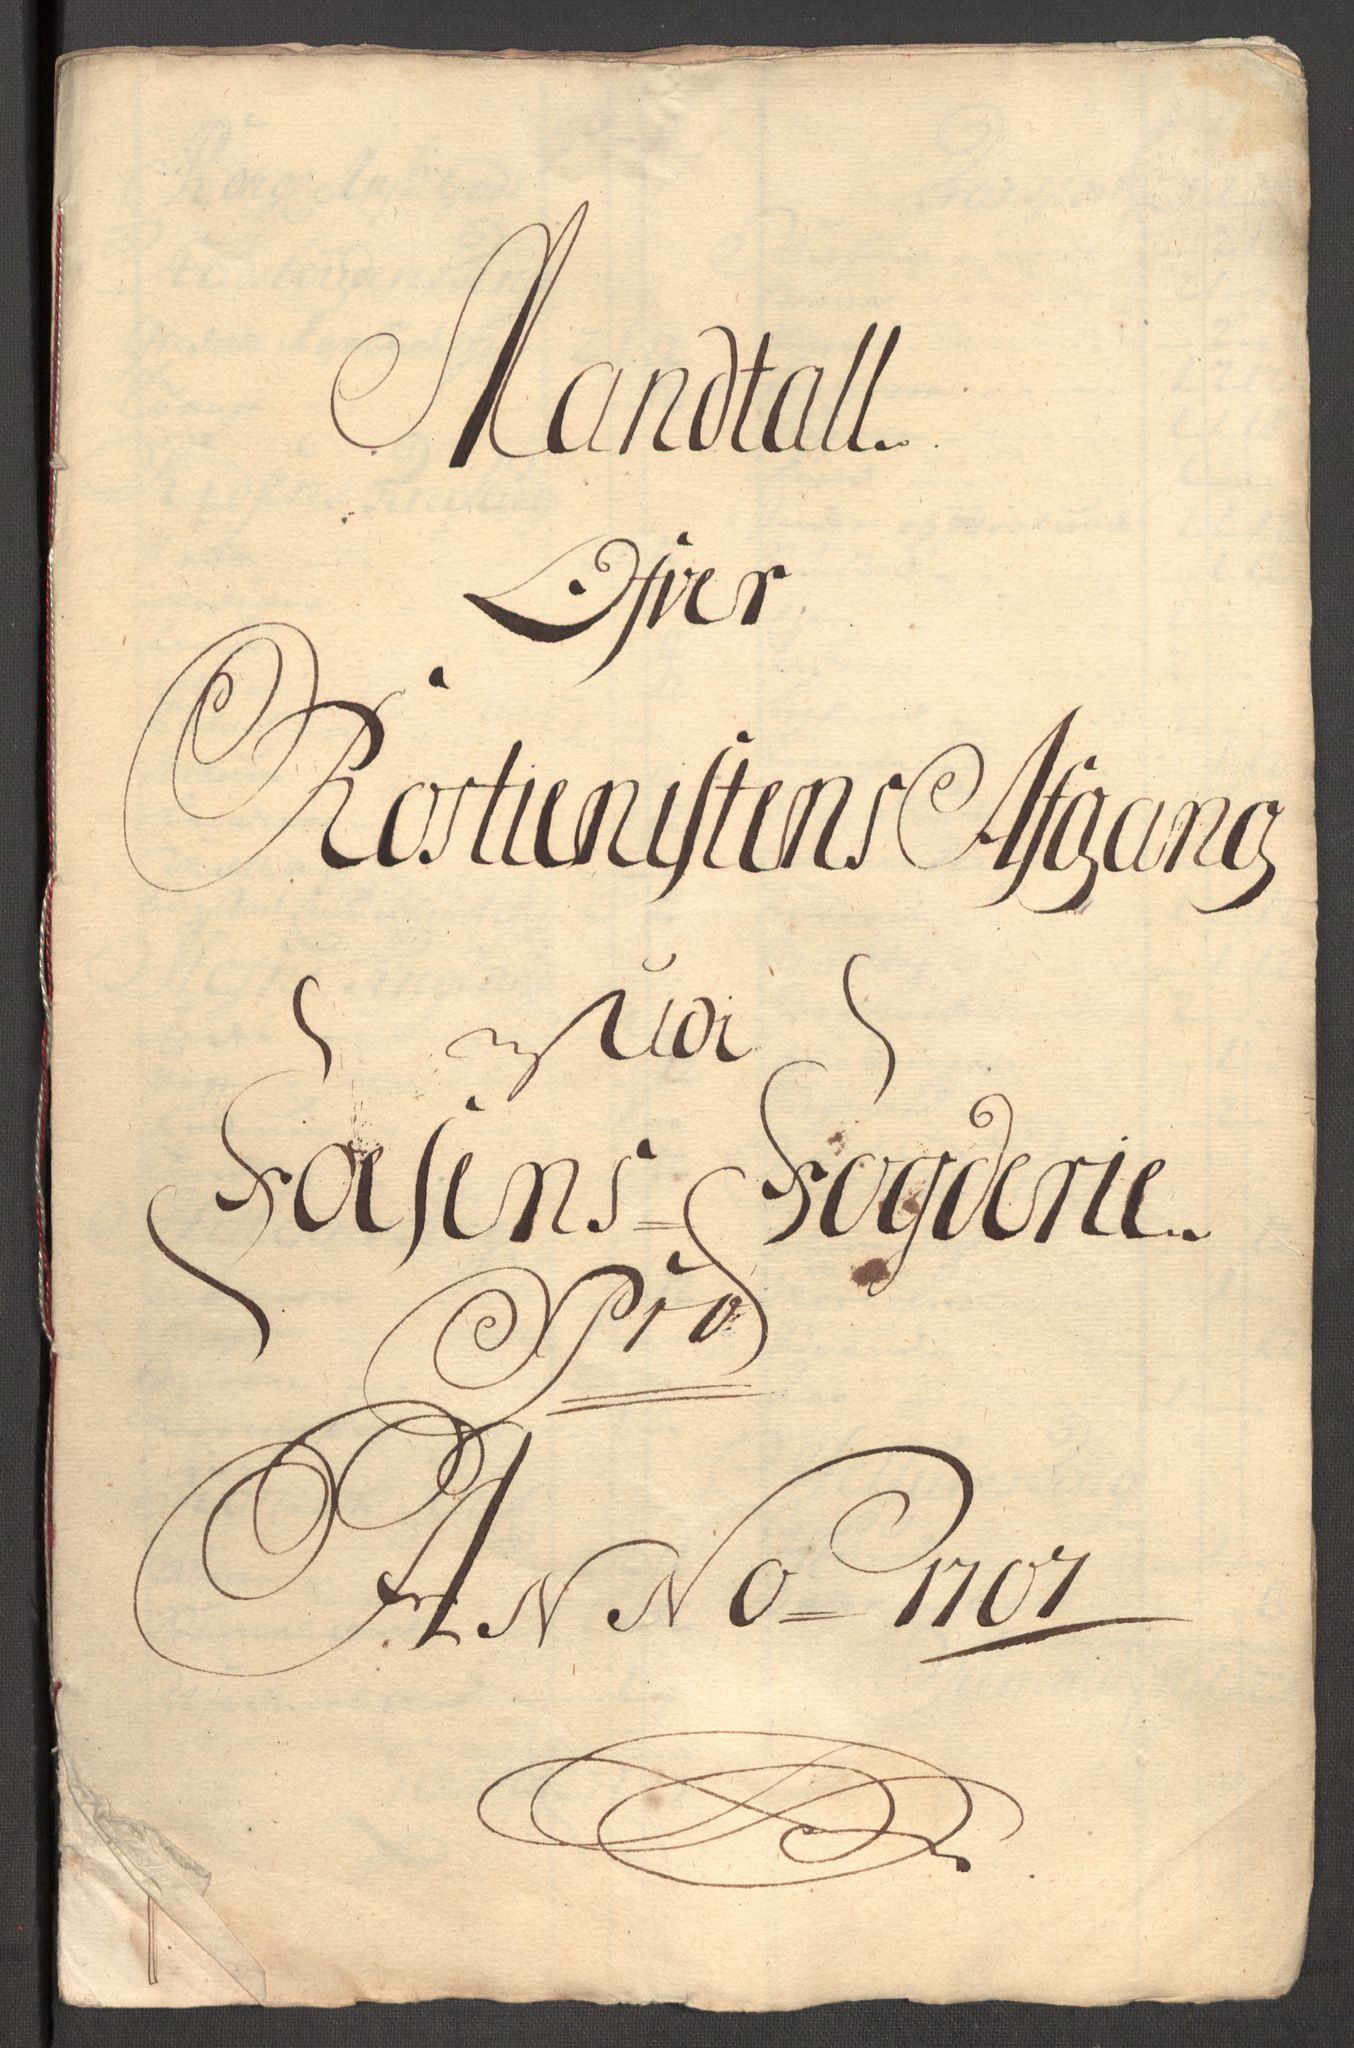 Mandtall
Ofver
Rostienistens Afgang
Udi
Fosens Fogderie
Pro
ANNo 1707